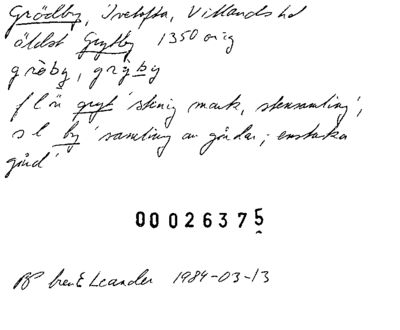 Grödby, Ivetofta, Villands hd
äldst Grytby 1350 orig
gròby, grỳby
f l ä gryt 'stenig mark, stensamling',
s l by 'samling av gårdar; enstaka
gård'
00026375
BP Leander 1984-03-13